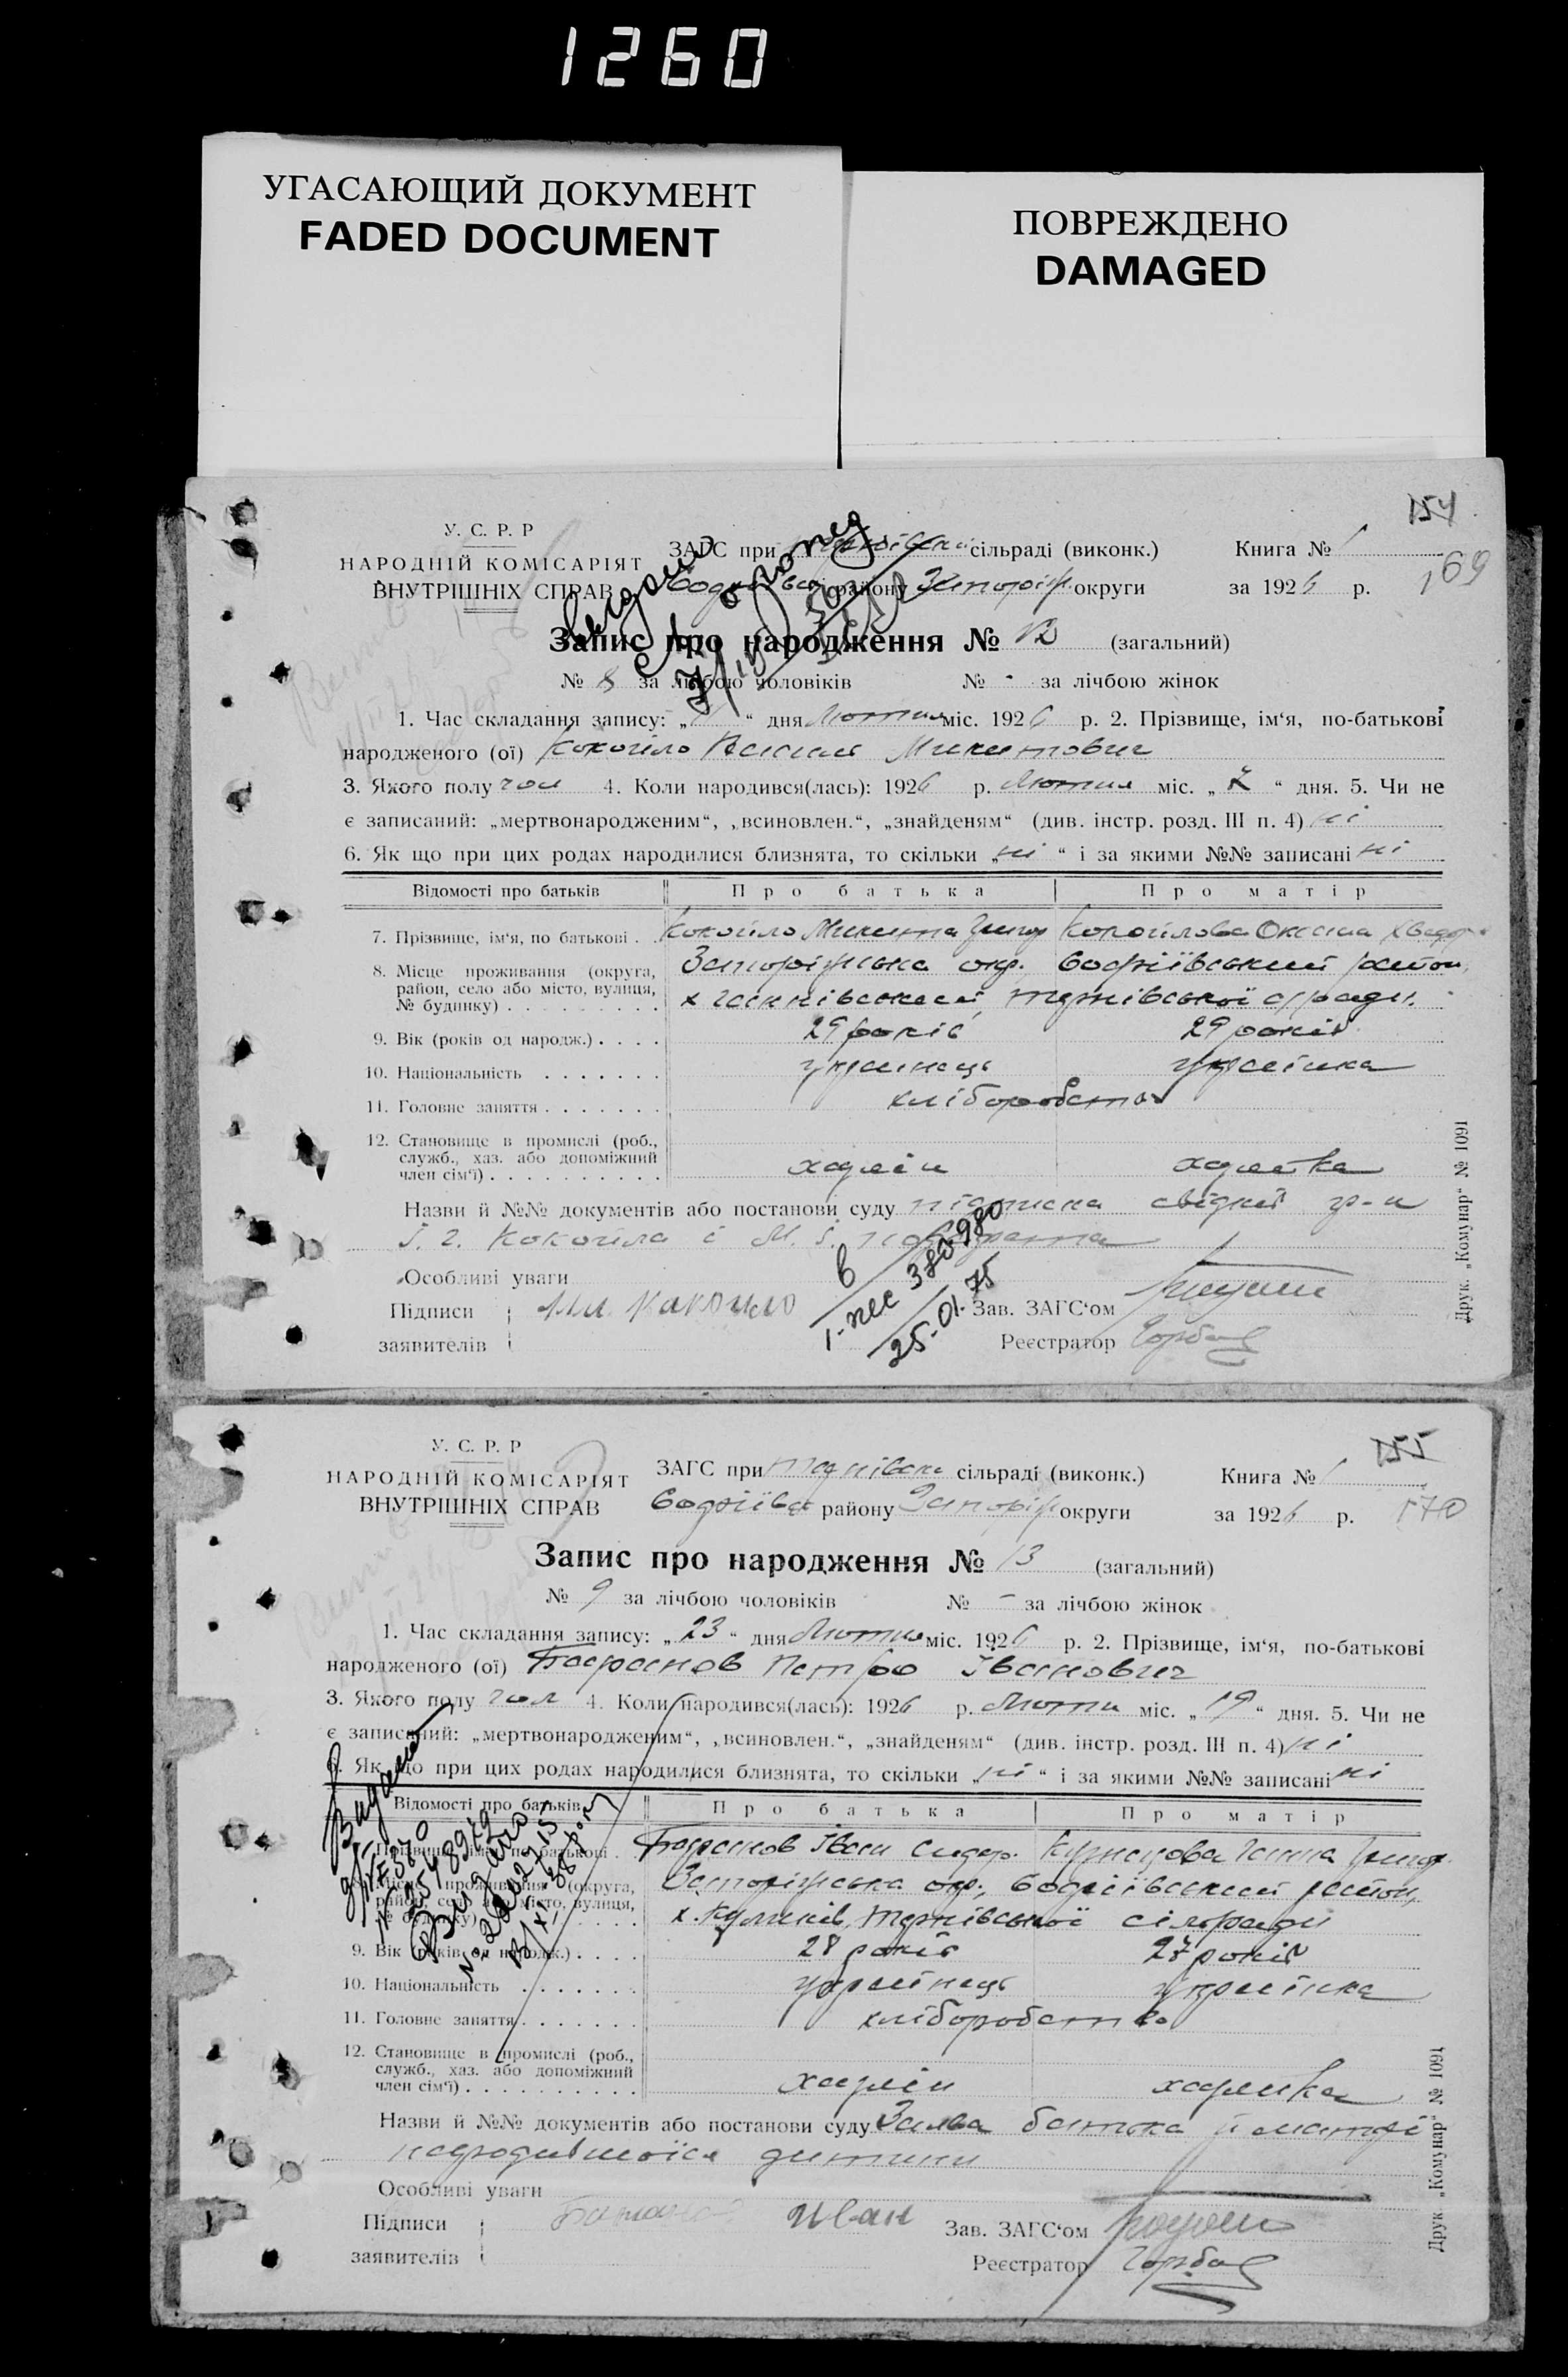 1260
УГАСАЮЩИЙ ДОКУМЕНТ
FADED DOCUMENT
ПОВРЕЖДЕНО
DAMAGED
154
169
У. С. Р. Р
НАРОДНІЙ КОМІСАРІЯТ
ВНУТРІШНІХ СПРАВ
ЗАГС при сільраді (виконк.)
району Запоріж округи
Книга № 1
за 1926 р.
Запис про народження № 12 (загальний)
№ 8 за лічбою чоловіків № - за лічбою жінок
1. Час складання запису: „ “ дня Лютня міс. 1926 р. 2. Прізвище, ім‘я, по-батькові
народженого (ої) Кокоїло Василь Микитович
3. Якого полу чол 4. Коли народився(лась): 1926 р. Лютня міс. „ 7 “ дня. 5. Чи не
є записаний: „мертвонародженим“, „всиновлен.“, „знайденям“ (див. інстр. розд. III п. 4) ні
6. Як що при цих родах народилися близнята, то скільки „ ні “ і за якими №№ записані ні
Відомості про батьків Про батька Про матір
7. Прізвище, ім‘я, по батькові . . Кокоїло Микита Григор Кокоїлова Оксана Хведор
8. Місце проживання (округа, район, село або місто, вулиця, № будинку) Запоріжська окр. район,
х Ганнівський, Тернівської с/ради.
9. Вік (років од народж.) 29 років 29 років
10. Національність українець українка
11. Головне заняття хліборобство
12. Становище в промислі (роб., служб., хаз. або допоміжний член сім‘ї) хазяїн хазяйка
Назви й №№ документів або постанови суду підписка свідків гр-н
Кокоїла і М.
Особливі уваги
Підписи заявителів
Зав. ЗАГС‘ом
Реєстратор Горбач
380980
25.01.75
Друк. „Комунар“ № 1091
155
170
У. С. Р. Р
НАРОДНІЙ КОМІСАРІЯТ
ВНУТРІШНІХ СПРАВ
ЗАГС при Тернівськ сільраді (виконк.)
району Запоріж округи
Книга № 1
за 1926 р.
Запис про народження № 13 (загальний)
№ 9 за лічбою чоловіків № - за лічбою жінок
1. Час складання запису: „ 23 “ дня Лютня міс. 1926 р. 2. Прізвище, ім‘я, по-батькові
народженого (ої) Петро Іванович
3. Якого полу чол 4. Коли народився(лась): 1926 р. Лютн міс. „ 19 “ дня. 5. Чи не
є записаний: „мертвонародженим“, „всиновлен.“, „знайденям“ (див. інстр. розд. III п. 4) ні
6. Як що при цих родах народилися близнята, то скільки „ ні “ і за якими №№ записані ні
Відомості про батьків Про батька Про матір
7. Прізвище, ім‘я, по батькові . Іван Сидор. Ганна Григор.
8. Місце проживання (округа, район, село або місто, вулиця, № будинку) Запоріжська окр., район,
х. Куликів, Тернівської сільради
9. Вік (років од народж.) 28 років 27 років
10. Національність українець українка
11. Головне заняття хліборобство
12. Становище в промислі (роб., служб., хаз. або допоміжний член сім‘ї) хазяїн хазяйка
Назви й №№ документів або постанови суду Заява батька й матері
народившоїся дитини
Особливі уваги
Підписи заявителів Иван
Зав. ЗАГС‘ом
Реєстратор Горбач
Друк. „Комунар“ № 1091